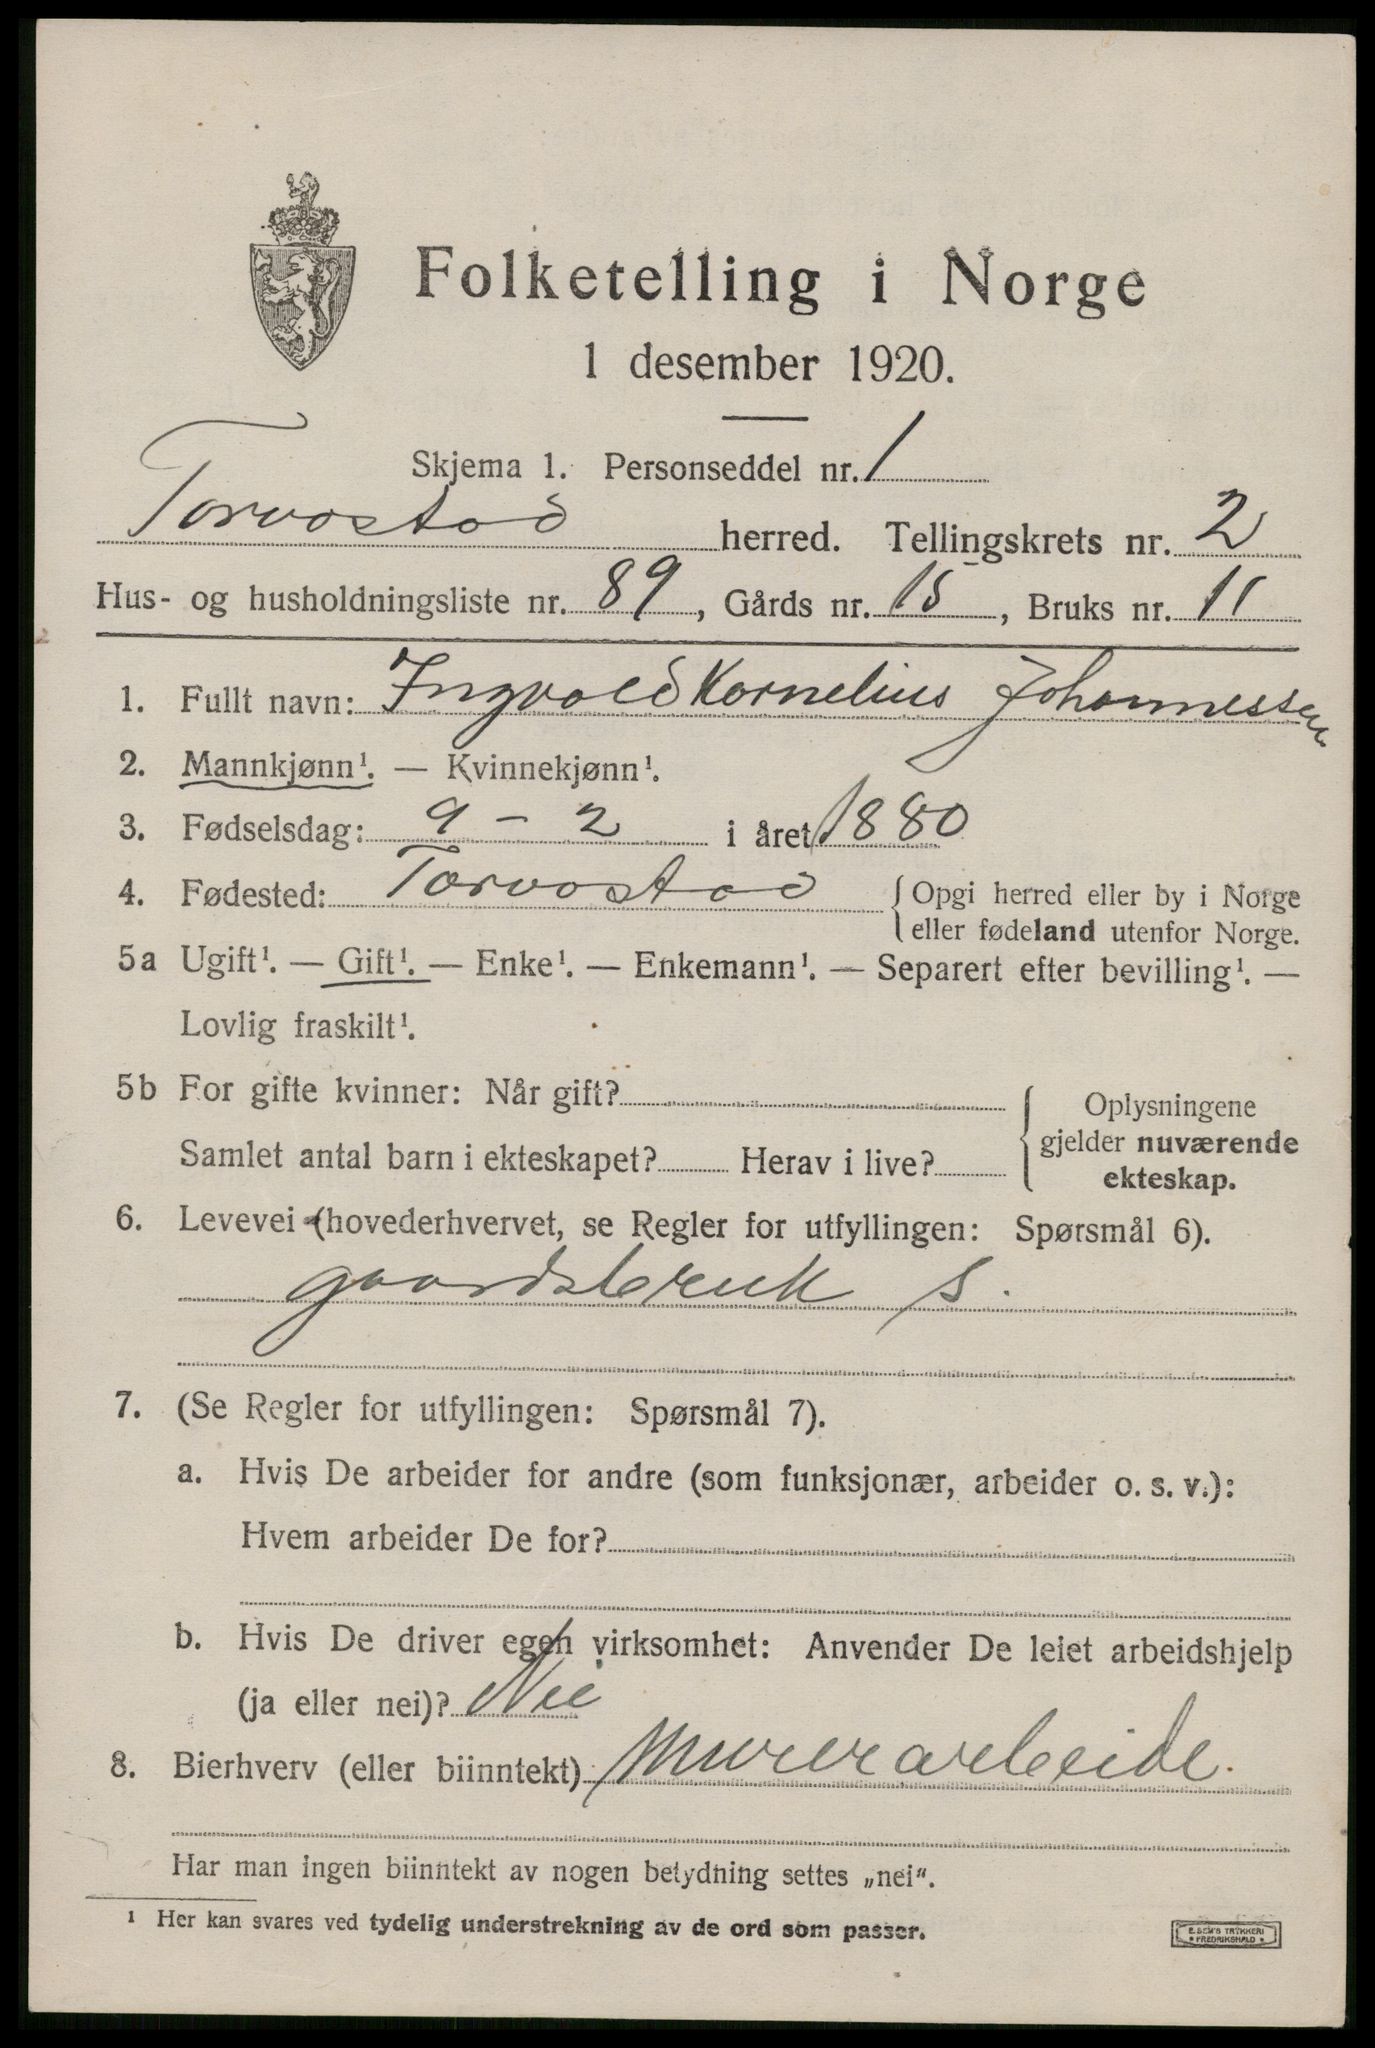 Folketelling i Norge
1 desember 1920.
Skjema 1. Personseddel nr. 1
Torvastad herred. Tellingskrets nr. 2
Hus- og husholdningsliste nr. 89, Gårds nr. 15, Bruks nr. 11
1. Fullt navn: Ingvald Kornelius Johannessen
2. Mannkjønn¹. — Kvinnekjønn¹.
3. Fødselsdag: 9 - 2 i året 1880
4. Fødested: Torvastad { Opgi herred eller by i Norge
eller fødeland utenfor Norge.
5a Ugift¹. — Gift¹. — Enke¹. — Enkemann¹. — Separert efter bevilling¹. —
Lovlig fraskilt¹.
5b For gifte kvinner: Når gift? { Oplysningene
gjelder nuværende
Samlet antal barn i ekteskapet? Herav i live? ekteskap.
6. Levevei (hovederhvervet, se Regler for utfyllingen: Spørsmål 6).
gaardsbruk s.
7. (Se Regler for utfyllingen: Spørsmål 7).
a. Hvis De arbeider for andre (som funksjonær, arbeider o. s. v.):
Hvem arbeider De for?
b. Hvis De driver egen virksomhet: Anvender De leiet arbeidshjelp
(ja eller nei)? Nei
8. Bierhverv (eller biinntekt) Murerarbeide.
Har man ingen biinntekt av nogen betydning settes „nei“.
¹ Her kan svares ved tydelig understrekning av de ord som passer.
E. SEM'S TRYKKERI
* FREDRIKSHALD *